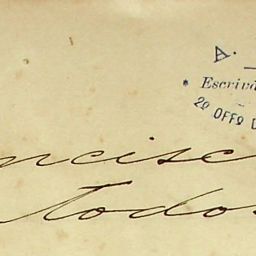 A.
Escriv
2º OFFº D
ncisc
todos